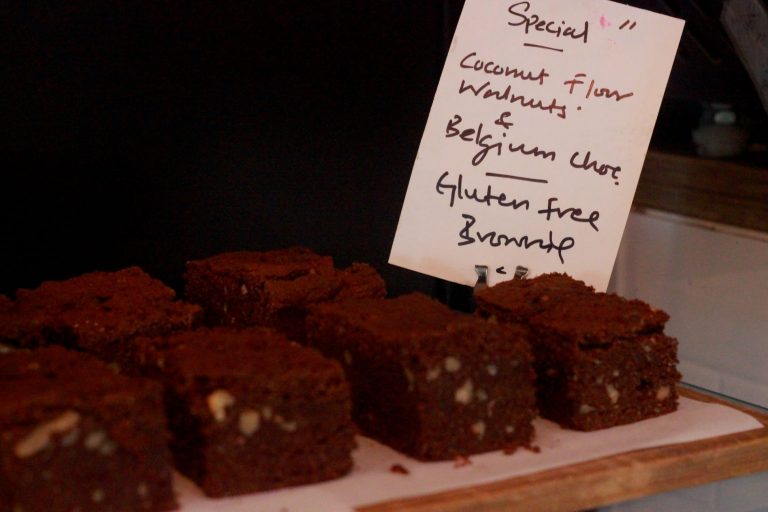 Special "
Coconut Flour
Walnuts
&
Belgium Choc
Gluten free
Brownie